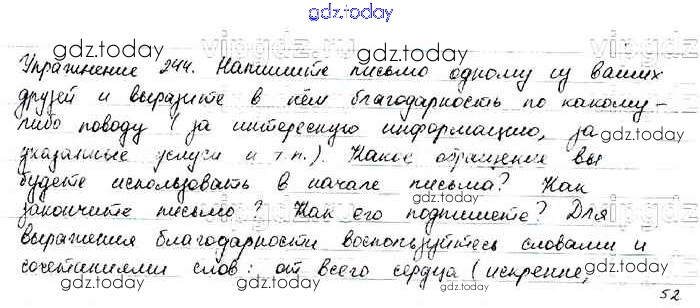 gdz.today
Упражнение 244. Напишите письмо одному из ваших
друзей и выразите в нём благодарность по какому-
либо поводу (за интересную информацию, за
указанные услуги и т.п.). Какое обращение вы
будете использовать в начале письма? Как
закончите письмо? Как его подпишете? Для
выражения благодарности воспользуйтесь словами и
сочетаниями слов: от всего сердца (искренне,
52